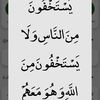 يَسْتَخْفُونَ
مِنَ النَّاسِ وَلَا
يَسْتَخْفُونَ مِنَ
اللَّهِ وَهُوَ مَعَهُمْ